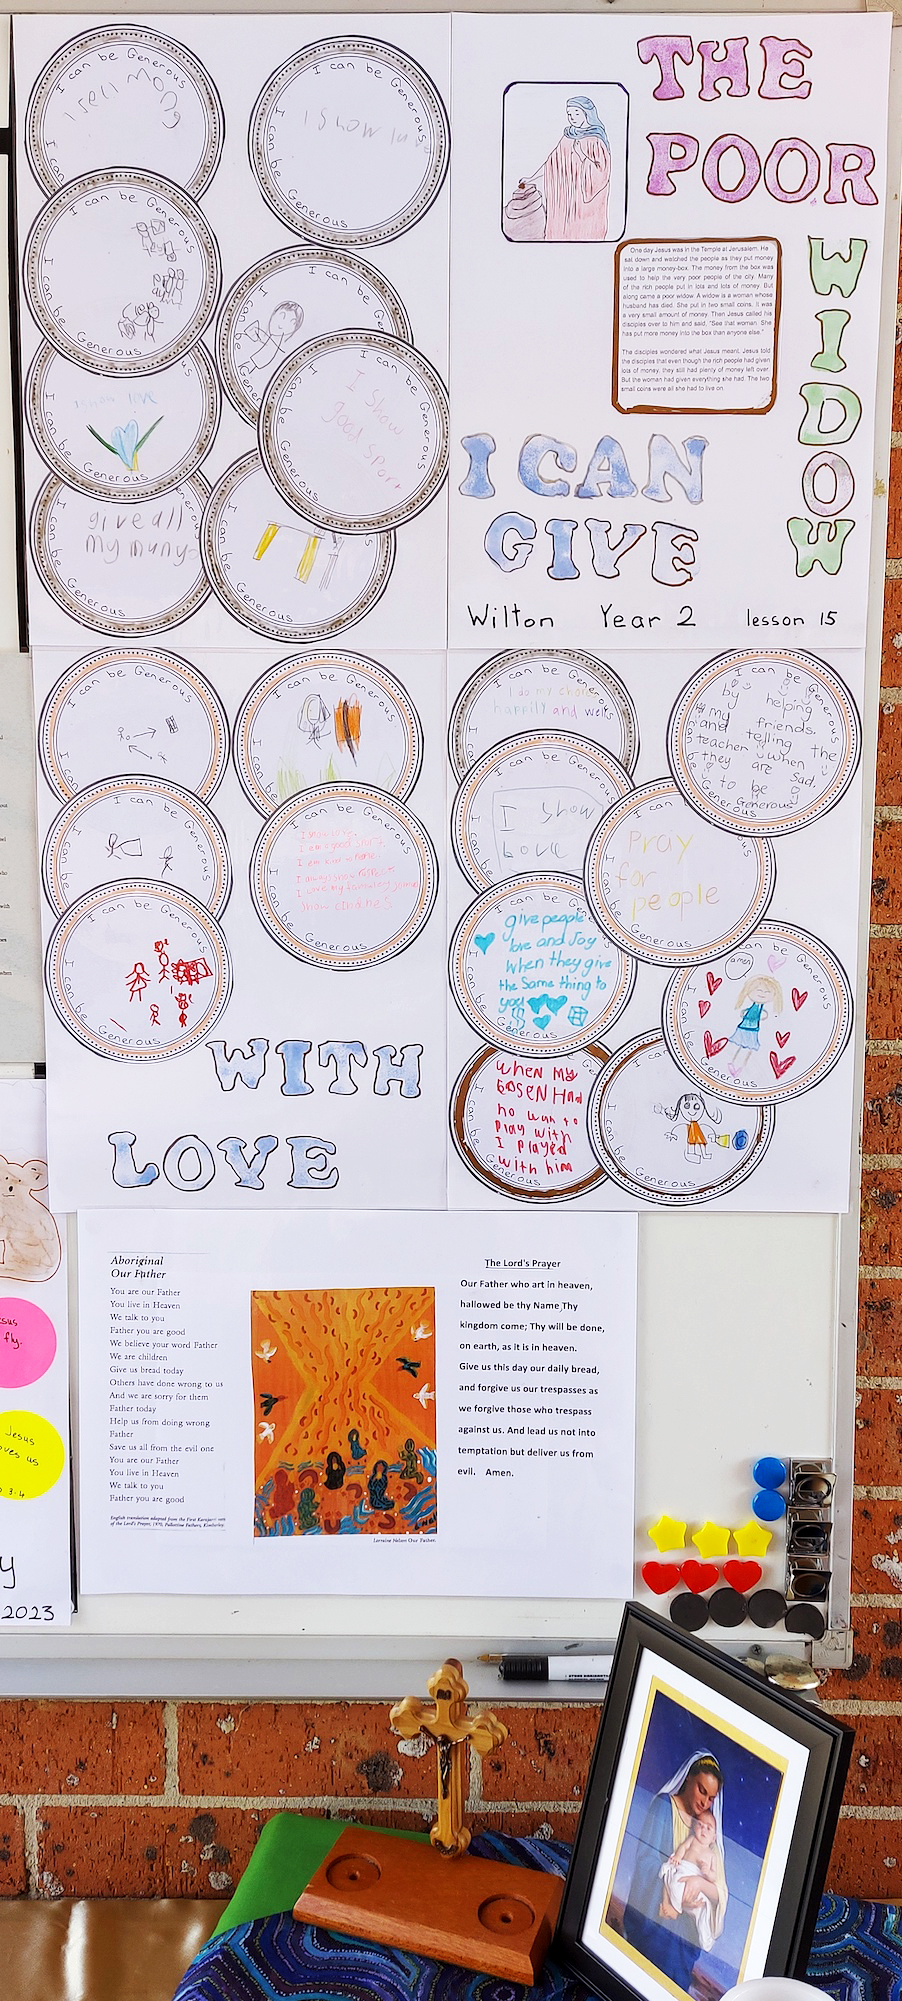 THE
POOR
WIDOW
One day Jesus was in the Temple at Jerusalem. He
sat down and watched the people as they put money
into a large money-box. The money from the box was
used to help the very poor people of the city. Many
of the rich people put in lots and lots of money. But
along came a poor widow. A widow is a woman whose
husband has died. She put in two small coins. It was
a very small amount of money. Then Jesus called his
disciples over to him and said, "See that woman. She
has put more money into the box than anyone else."
The disciples wondered what Jesus meant. Jesus told
the disciples that even though the rich people had given
lots of money, they still had plenty of money left over.
But the woman had given everything she had. The two
small coins were all she had to live on.
I CAN
GIVE
Wilton Year 2 lesson 15
I can be Generous
I can be Generous
I show
I can be Generous
Generous
I can be
Generous
I can be
I show
good sport
I can be
Generous
give all
my muny
Generous
I can be
Generous
I can be Generous
I can be Generous
I can be Generous
I can be Generous
I am a good sport
I can be Generous
Generous
WITH
LOVE
I can be Generous
I do my
happily and
I can be Generous
by helping
my friends.
and telling the
teacher when
they are sad.
to be
Generous
I can be Generous
I show
Love
I can
Pray
for
people
Generous
I can be
give people
love and Joy
when they give
the same thing to
you
Generous
can be Generous
amen
Generous
I can be
when my
Had
no wun to
play with
I played
with him
Generous
I can
be
Generous
Aboriginal
Our Father
You are our Father
You live in Heaven
We talk to you
Father you are good
We believe your word Father
We are children
Give us bread today
Others have done wrong to us
And we are sorry for them
Father today
Help us from doing wrong
Father
Save us all from the evil one
You are our Father
You live in Heaven
We talk to you
Father you are good
English translation adapted from the First
of the Lord's Prayer, 1970, Pallottine Fathers, Kimberley.
Lorraine Nelson Our Father.
The Lord's Prayer
Our Father who art in heaven,
hallowed be thy Name Thy
kingdom come; Thy will be done,
on earth, as it is in heaven.
Give us this day our daily bread,
and forgive us our trespasses as
we forgive those who trespass
against us. And lead us not into
temptation but deliver us from
evil. Amen.
fly.
Jesus
us
3:4
y
2023